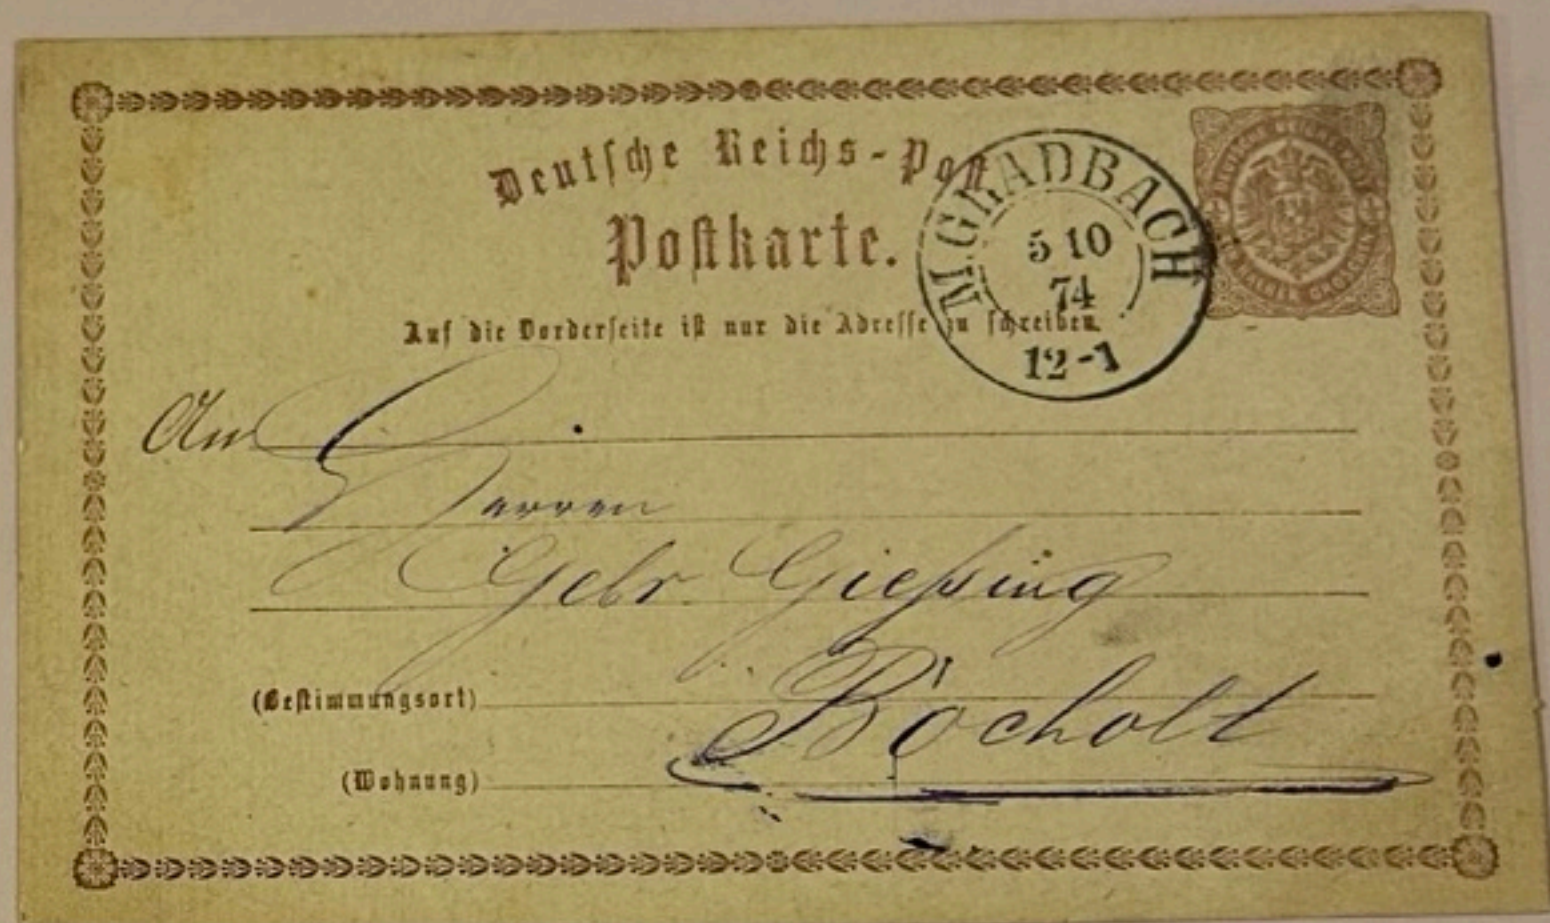 Deutsche Reichs-Post
Postkarte.
M.GLADBACH
5 10
74
12-1
Auf die Vorderseite ist nur die Adresse zu schreiben.
An
Herren
Gebr Gießing
(Bestimmungsort) Bocholt
(Wohnung)